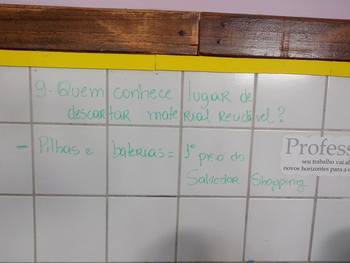 9. Quem conhece lugar de
descartar material Reciclável?
- Pilhas e baterias = 1º piso do
Salvador Shopping
Profess
seu trabalho vai al
novos horizontes para a